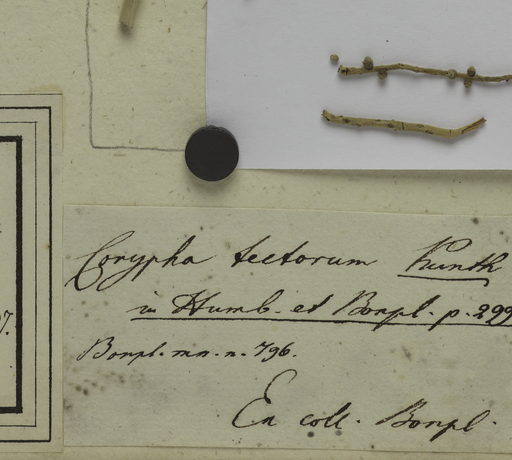 Corypha tectorum Kunth
in Humb. et Bonpl. p. 299
Bonpl. mn. n. 796.
Ex coll. Bonpl.
97.